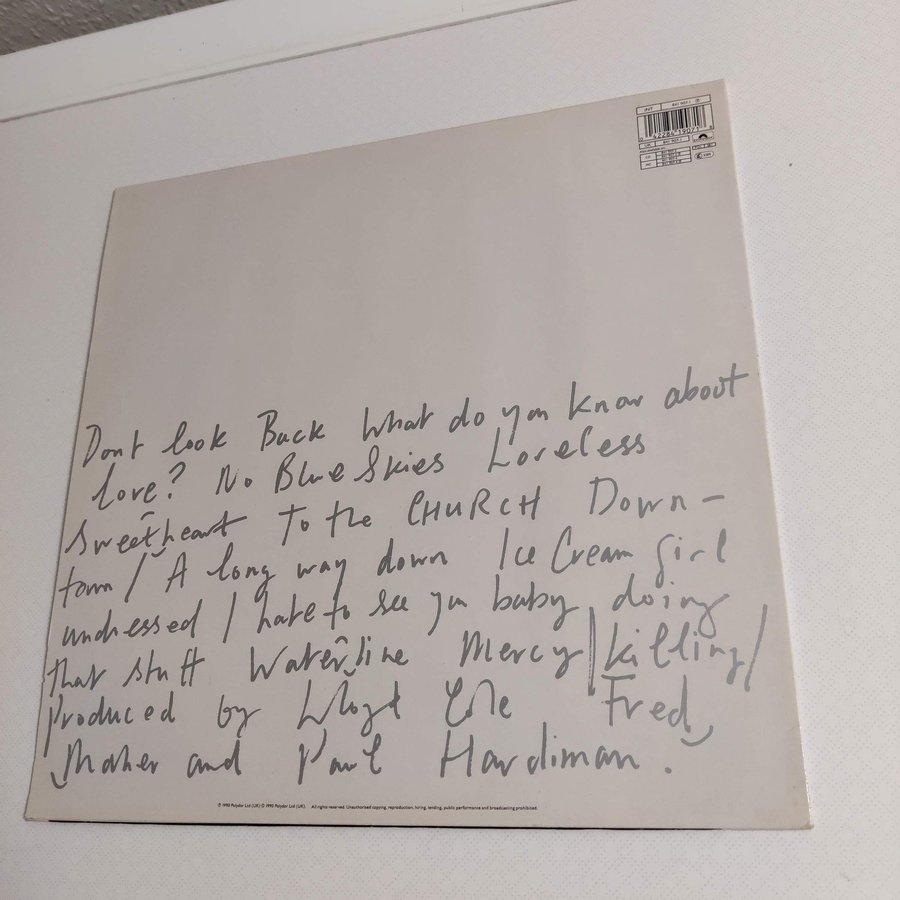 INT
841 907-1
0 42284 19071
UK
841 907-1
Dont look Back What do you know about
love? No Blue Skies Loveless
Sweetheart To the CHURCH Down-
town / A long way down Ice Cream Girl
undressed I hate to see you baby doing
that stuff Waterline Mercy/killing/
Produced by Lloyd Cole Fred
Maher and Paul Hardiman.
℗ 1990 Polydor Ltd (UK) © 1990 Polydor Ltd (UK). All rights reserved. Unauthorised copying, reproduction, hiring, lending, public performance and broadcasting prohibited.